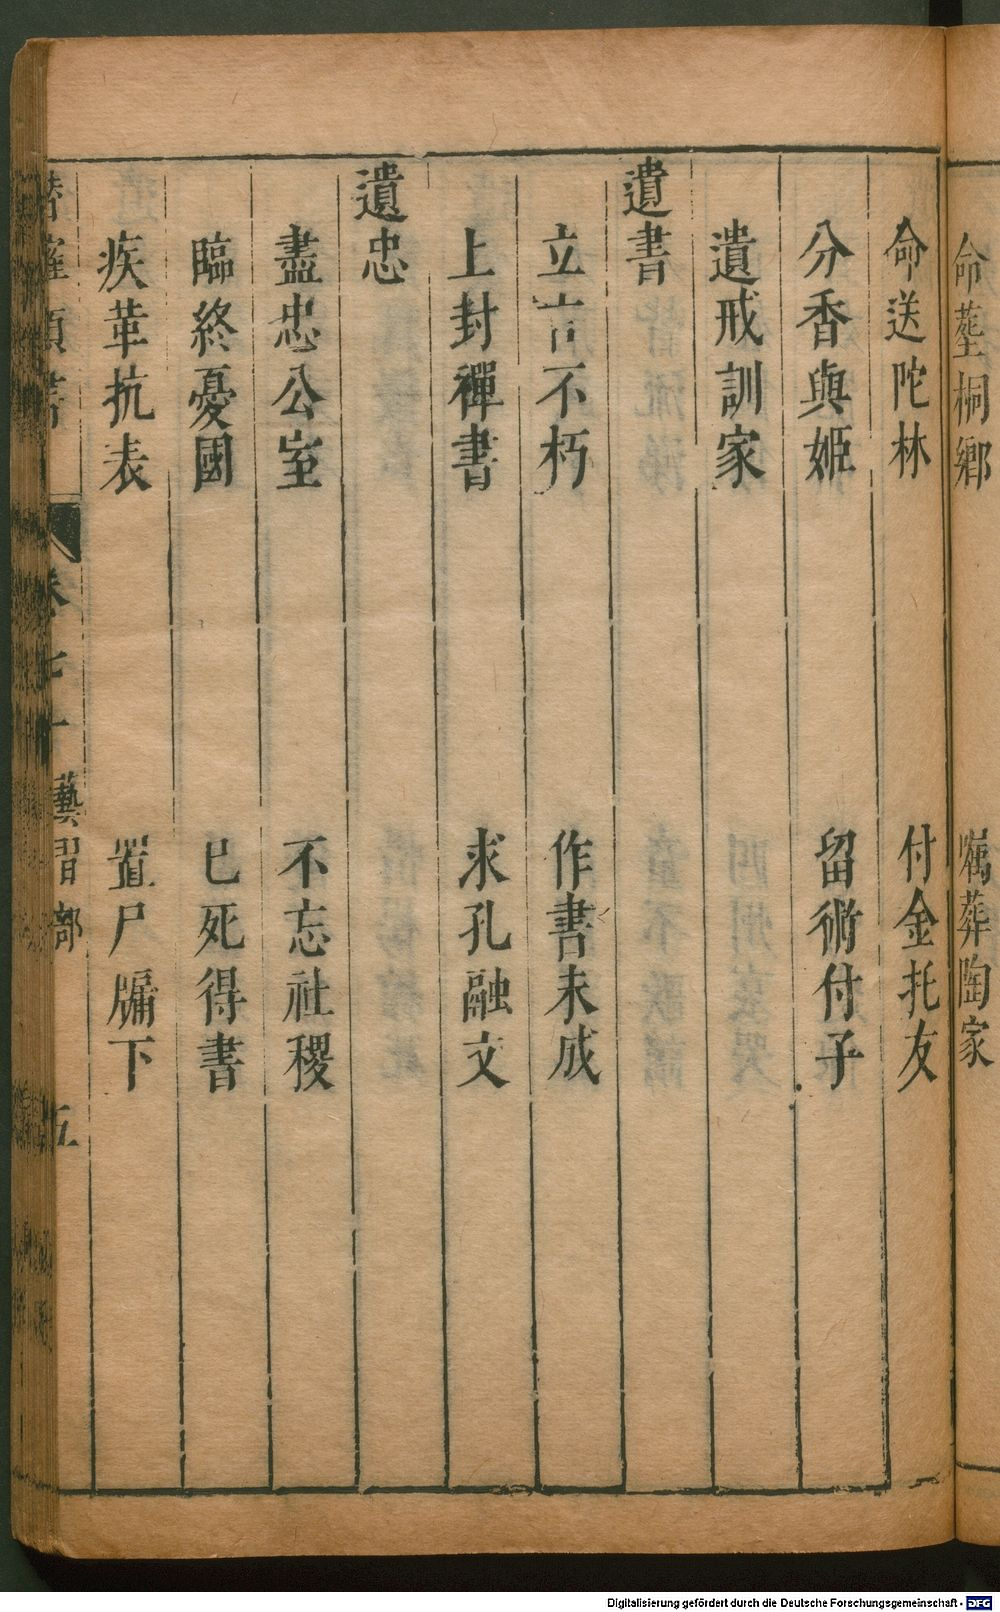 命塟桐鄉　嘱葬陶家
命送陀林　付金托友
分香與姬　留術付子
遺戒訓家
遺書
立言不朽　作書未成
上封禪書　求孔融文
遺忠
盡忠公室　不忘社稷
臨終憂國　已死得書
疾革抗表　置尸牖下
卷七十　藝習部　五
Digitalisierung gefördert durch die Deutsche Forschungsgemeinschaft - DFG